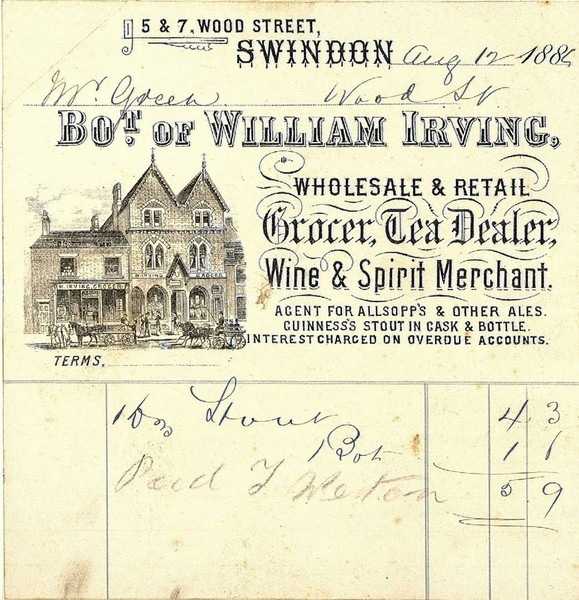 5 & 7, WOOD STREET,
SWINDON Aug 12 188
Mr. Green Wood St
BOT. OF WILLIAM IRVING,
WHOLESALE & RETAIL
Grocer, Tea Dealer,
Wine & Spirit Merchant.
AGENT FOR ALLSOPP'S & OTHER ALES.
GUINNESS'S STOUT IN CASK & BOTTLE.
INTEREST CHARGED ON OVERDUE ACCOUNTS.
W. IRVING, GROCER
TERMS,
1 Doz Stout 4 3
Bot 1 6
Paid 5 9